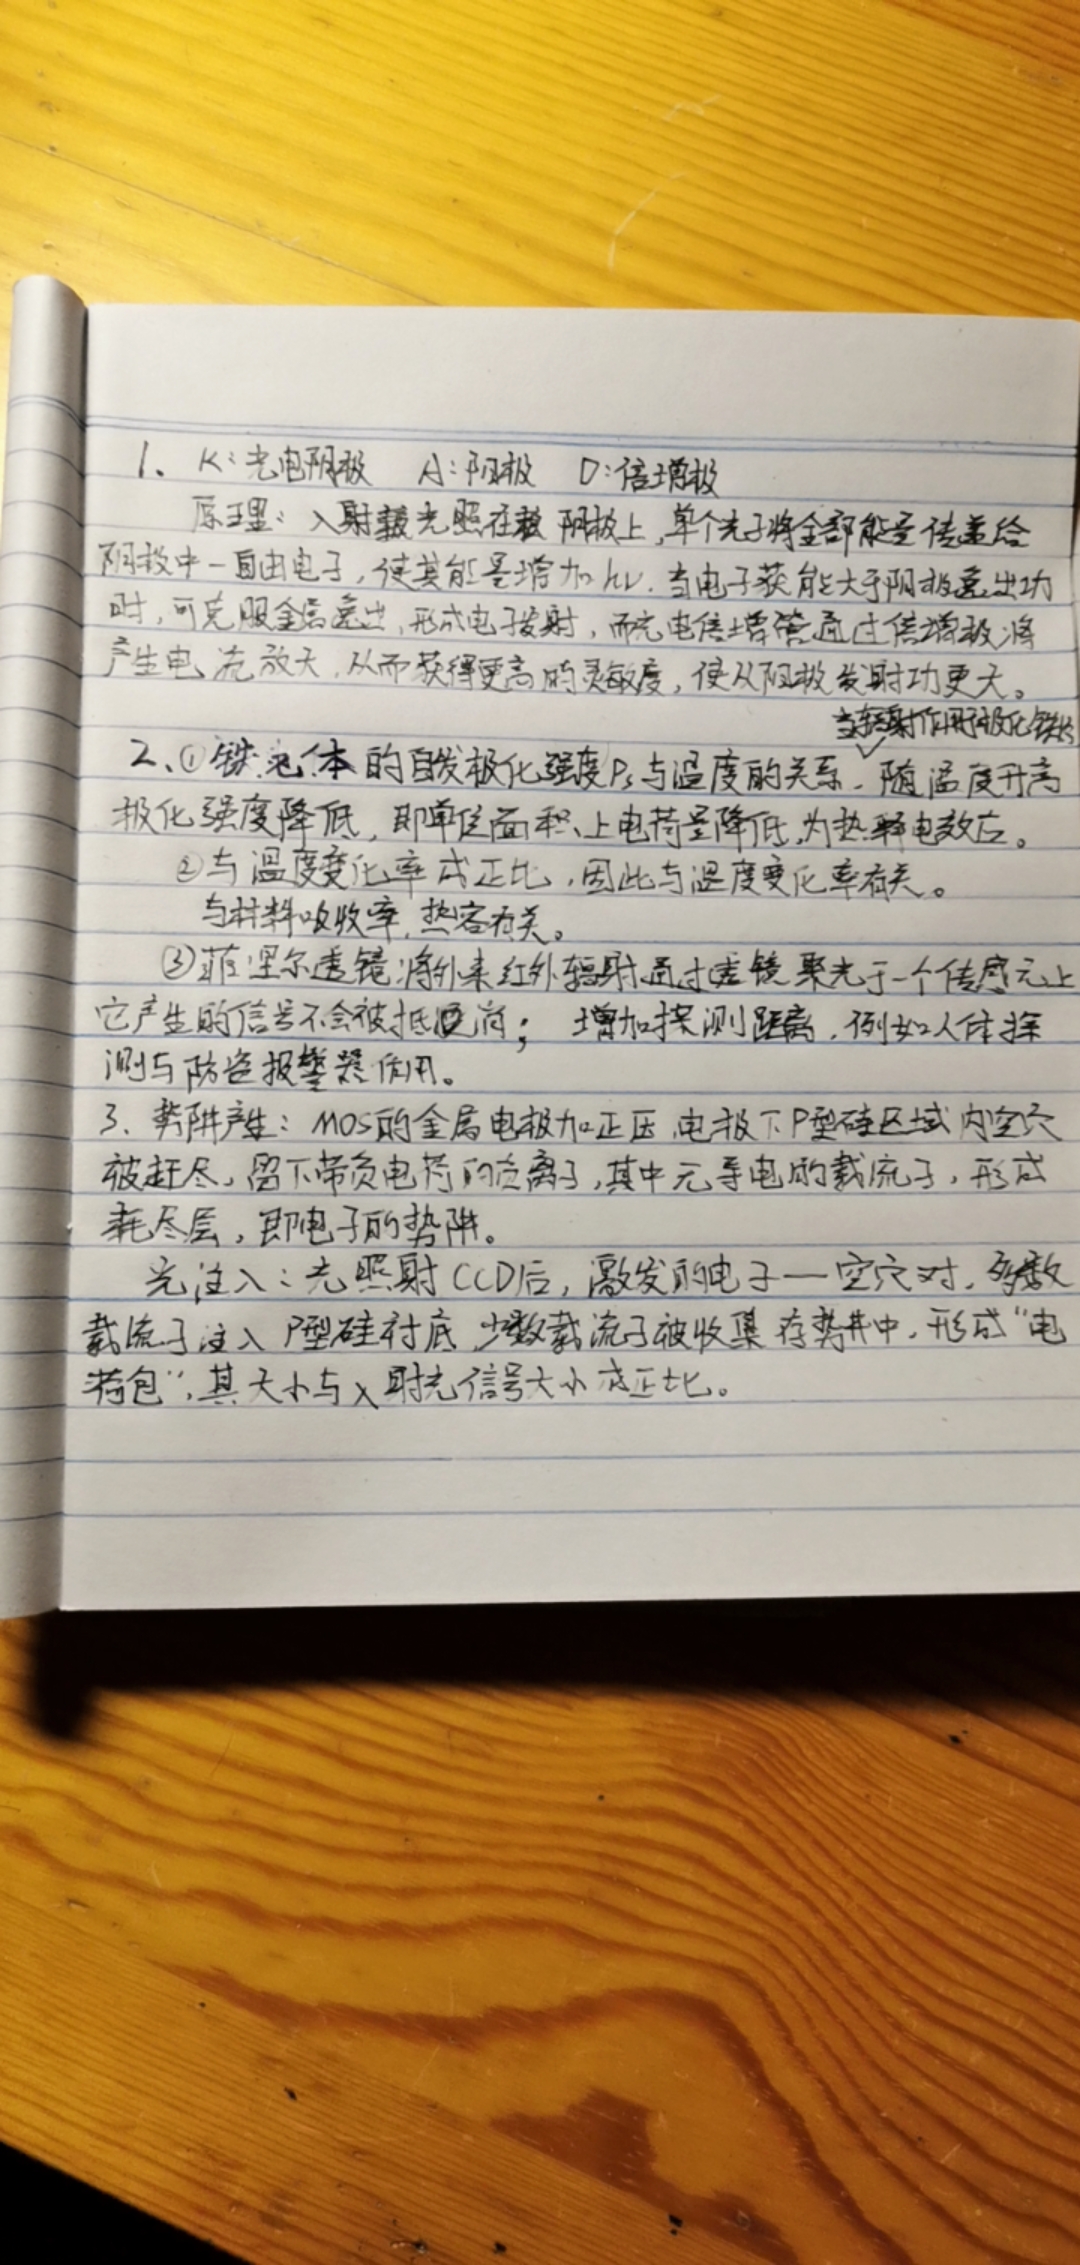 1、 K:光电阴极 A:阳极 D:倍增极
原理:入射光照在阴极上,单个光子将全部能量传递给
阴极中一自由电子,使其能量增加hν.当电子获能大于阴极逸出功
时,可克服金属逸出,形成电子发射,而光电倍增管通过倍增极将
产生电流放大,从而获得更高的灵敏度,使从阴极发射功更大。
当辐射作用于极化铁
2、①铁电体的自发极化强度Ps与温度的关系.随温度升高
极化强度降低,即单位面积上电荷量降低,为热释电效应。
②与温度变化率成正比,因此与温度变化率有关。
与材料吸收率,热容有关。
③菲涅尔透镜将外来红外辐射通过透镜聚光于一个传感元上
它产生的信号不会被抵消; 增加探测距离,例如人体探
测与防盗报警器作用。
3、势阱产生:MOS的金属电极加正压,电极下P型硅区域内空穴
被赶尽,留下带负电荷的负离子,其中无导电的载流子,形成
耗尽层,即电子的势阱。
光注入:光照射CCD后,激发的电子—空穴对,多数
载流子注入P型硅衬底,少数载流子被收集存势井中,形成“电
荷包”,其大小与入射光信号大小成正比。